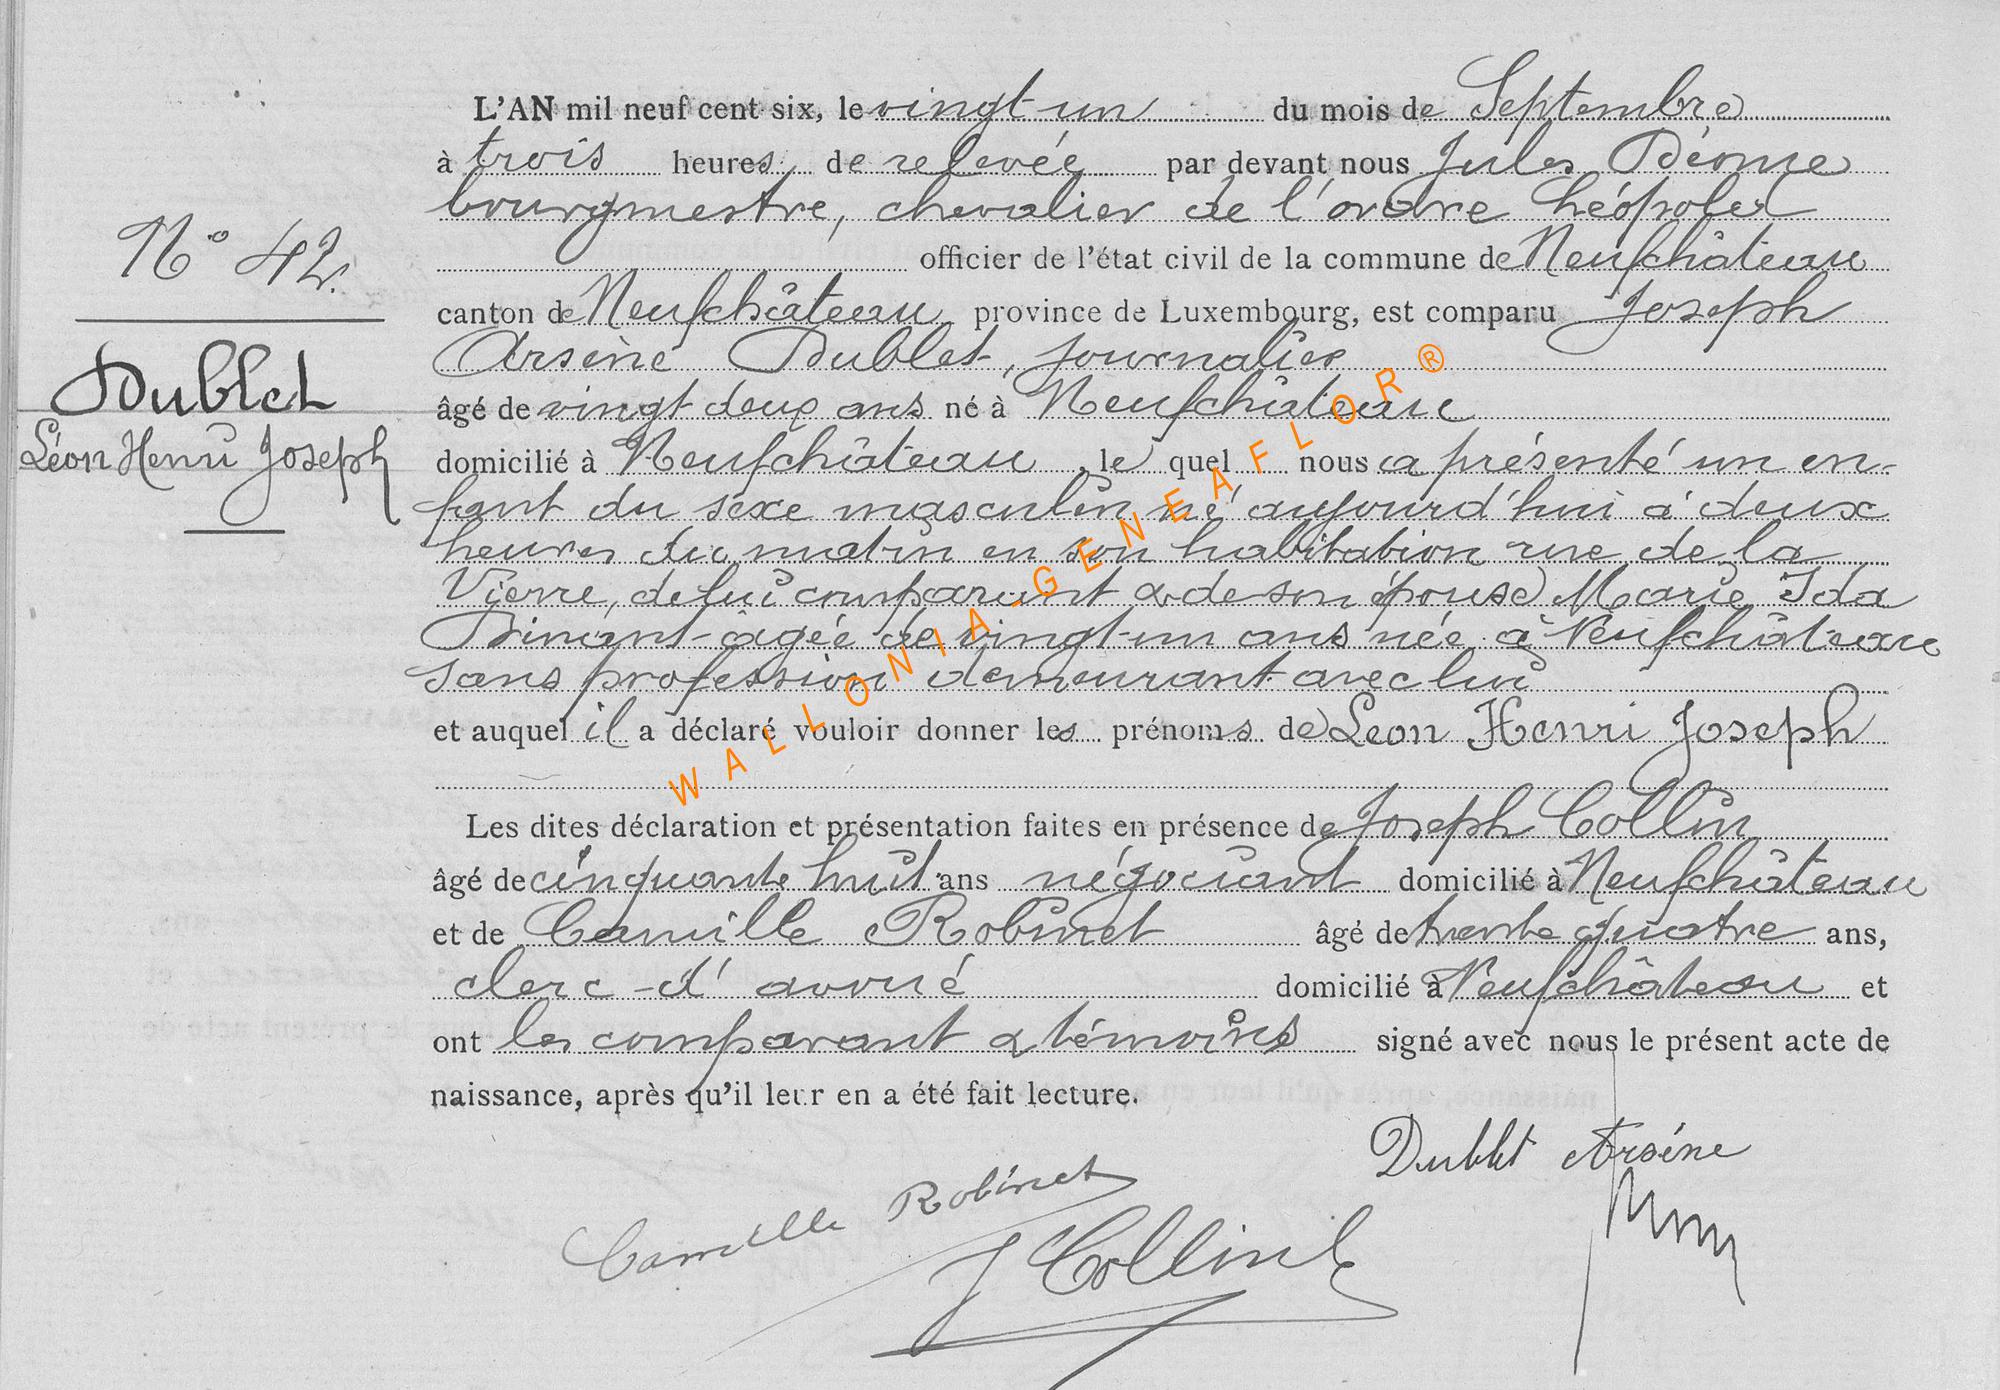 L'AN mil neuf cent six, le vingt-un du mois de Septembre
à trois heures de relevée par devant nous Jules
bourgmestre, chevalier de l'ordre Léopold
N° 42.
officier de l'état civil de la commune de Neufchâteau
canton de Neufchâteau province de Luxembourg, est comparu Joseph
Arsène Dublet, journalier
Dublet
âgé de vingt deux ans né à Neufchâteau
Léon Henri Joseph
domicilié à Neufchâteau, le quel nous a présenté un en-
fant du sexe masculin né aujourd'hui à deux
heures du matin en son habitation rue de la
Vierre, de lui comparant & de son épouse Marie Ida
Dinant âgée de vingt-un ans née à Neufchâteau
sans profession demeurant avec lui
et auquel il a déclaré vouloir donner les prénoms de Léon Henri Joseph
WALLONIA-GENEAFLOR®
Les dites déclaration et présentation faites en présence de Joseph Collin
âgé de cinquante huit ans négociant domicilié à Neufchâteau
et de Camille Robinet âgé de trente quatre ans,
clerc-d'avoué domicilié à Neufchâteau et
ont les comparant & témoins signé avec nous le présent acte de
naissance, après qu'il leur en a été fait lecture.
Dublet Arsène
Camille Robinet
J Collin